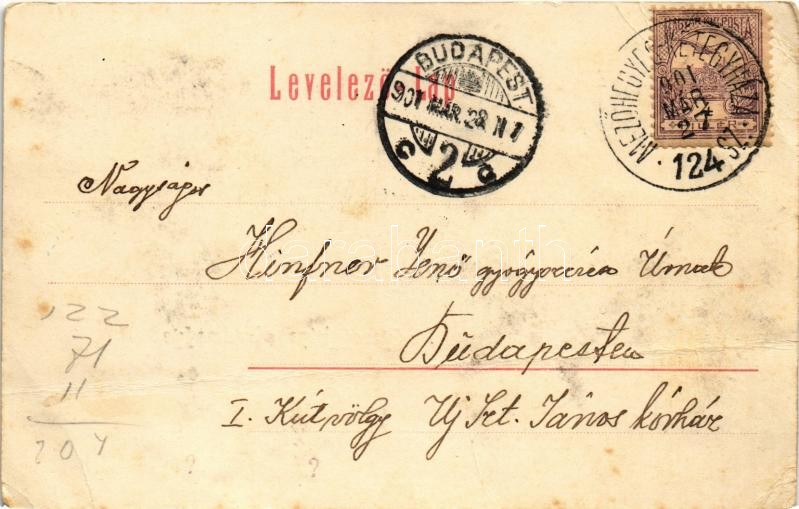 Levelező-Lap
BUDAPEST
901 MÁR. 28 N 7
MEZŐHEGYES-KÉTEGYHÁZA
901
MÁR
27
124 SZ.
Nagyságos
Hinfner Jenő gyógyszerész Úrnak
Budapesten
I. Kútvölgy Uj Szt. János kórház
122
71
11
204